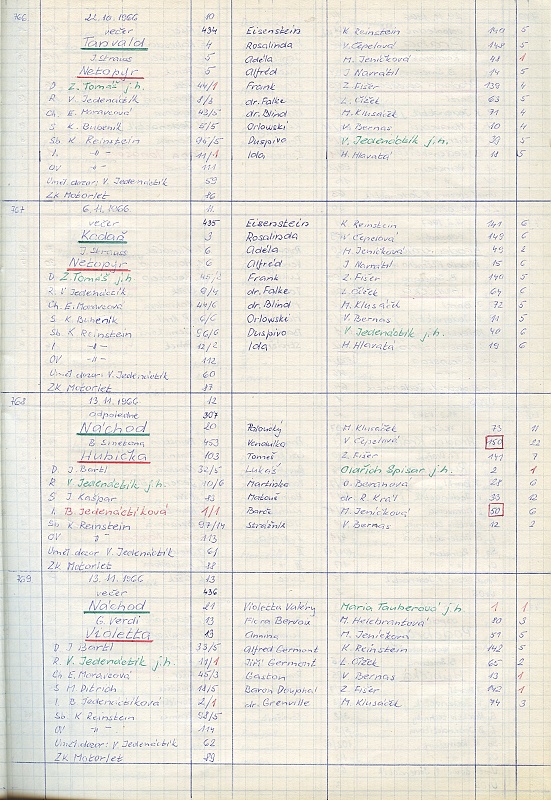 766 22.10.1966 10
večer 434 Eisenstein K Reinstein 140 5
Tanvald 4 Rosalinda V. Čepelová 148 5
J Strauss 5 Adéla M. Jeníčková 48 1
Netopýr 5 Alfréd J Narratil 14 5
D. Z. Tomáš j.h. 44/1 Frank Z. Fišer 139 4
R V. Jedenáctík 8/3 dr. Falke L. Čížek 63 5
Ch E. Moravcová 43/5 dr. Blind M. Klusáček 71 4
S K. Bubeník 5/5 Orlowski V. Bernas 10 4
Sb K Reinstein 95/5 Duspivo V. Jedenáctík j.h. 39 5
I. -"- 11/1 Ida H. Hlavatá 18 5
OV -"- 111
Uměl. dozor: V. Jedenáctík 59
ZK Motorlet 86
767 6.11.1966. 11
večer 435 Eisenstein K Reinstein 141 6
Kadaň 3 Rosalinda V Čepelová 149 6
J. Strauss 6 Adéla M. Jeníčková 49 2
Netopýr 6 Alfréd J Narratil 15 6
D Z Tomáš j.h 45/2 Frank Z. Fišer 140 5
R. V. Jedenáctík 9/4 dr. Falke L. Čížek 64 6
Ch. E. Moravcová 44/6 dr. Blind M. Klusáček 72 5
S K. Bubeník 6/6 Orlowski V. Bernas 11 5
Sb. K Reinstein 96/6 Duspivo V Jedenáctík j.h. 40 6
I -"- 12/2 Ida H. Hlavatá 19 6
OV -"- 112
Uměl dozor: V. Jedenáctík 60
ZK Motorlet 87
768 13.11.1966 12
odpoledne 307
Náchod 20 Palouský M. Klusáček 73 11
B. Smetana 453 Vendulka V Čepelová 150 22
Hubička 103 Tomeš Z. Fišer 141 7
D. J. Bartl 32/5 Lukáš Oldřich Spisar j.h. 2 1
R V Jedenáctík j.h. 10/6 Martinka O. Beránová 28 0
S J Kašpar 13 Matouš dr R. Král 33 12
I. B. Jedenáctíková 1/1 Barče M. Jeníčková 50 6
Sb K Reinstein 97/14 Strážník V. Bernas 12 3
OV " 113
Uměl dozor V. Jedenáctík 61
ZK Motorlet 88
769 13.11.1966 13
večer 436
Náchod 21 Violetta Valéry Maria Tauberová j.h 1 1
G. Verdi 13 Flora Bervoix M. Helebrantová 80 3
Violetta 13 Annina M. Jeníčková 51 5
D J Bartl 33/5 Alfred Germont K Reinstein 142 5
R. V. Jedenáctík j.h. 11/1 Jiří Germont L. Čížek 65 2
Ch. E. Moravcová 45/3 Gaston V Bernas 13 1
S M. Ditrich 18/5 Baron Douphol Z. Fišer 142 1
I B Jedenáctíková 2/1 dr. Grenville M Klusáček 74 3
Sb. K Reinstein 98/5
OV " 114
Uměl dozor: V Jedenáctík 62
ZK Motorlet 89